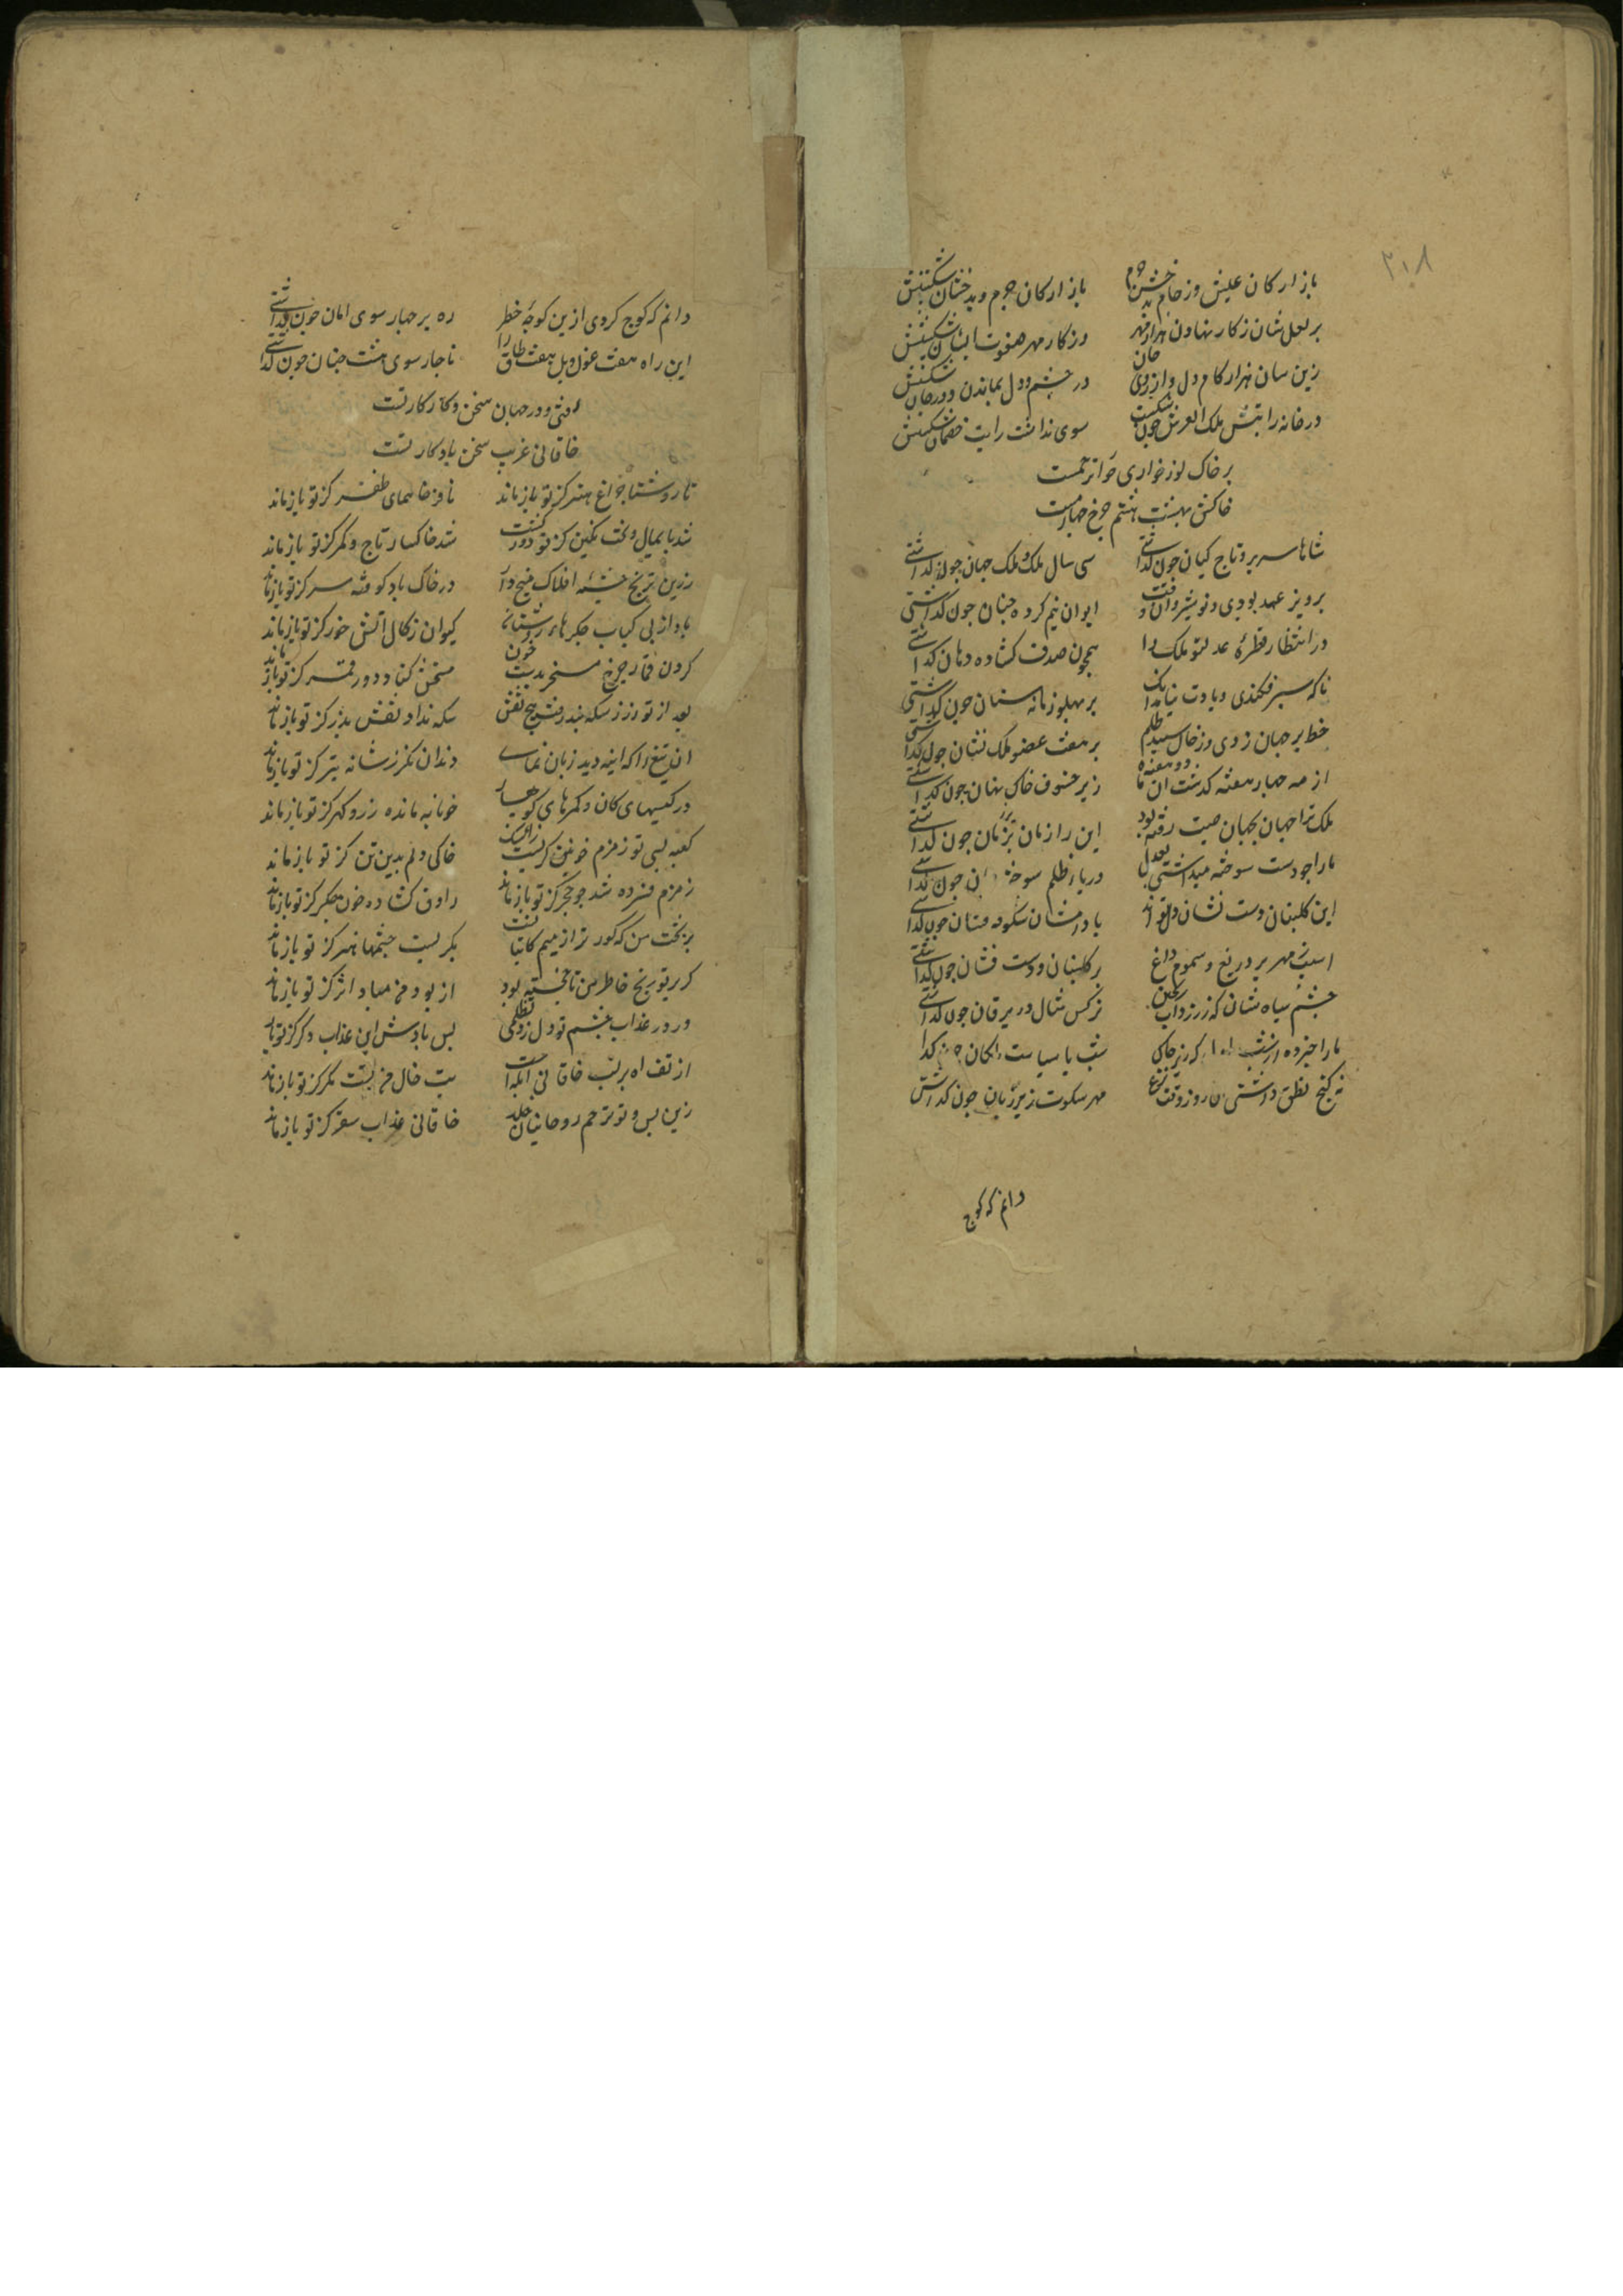 ۲۰۸
باز ار کان عیش وز جام باز ار کان جرم وبد خشان شکستش
بر لعل شان ز کار نهاون هزار مهر وز کار مهر صفوت ایشان شکستش
زین سان هزار کام دل و ارزوی جان در چشم و دل بماندن و در جان شکستش
در خانه را ملک العرش چون شکست سوی نداشت رایت خصمان شکستش
بر خاک
خاکش بهشت هشتم چرخ چهارمست
شاها سریر و تاج کیان چون کذاشتی سی سال ملک و ملک جهان چون کذاشتی
پرویز عهد بودی و نوشیروان وقت ایوان نیم کرده جنان چون کذاشتی
در انتظار قطرهٔ عدلتو ملک را همچون صدف کشاده دهان کذاشتی
ناکه سپر فکندی و یادت نیامد بر پهلو زمانه سنان چون کذاشتی
خط بر جهان زدی وز خال سپید ظلم بر هفت عضو ملک نشان چون کذاشتی
از مه چهار هفته کذشت ان دو هفته ماه زیر خسوف خاک نهان چون کذاشتی
ملک ترا جهان بجهان صیت رفته بود این را زمان بزمان چون کذاشتی
ما را چو دست سوخته میداشتی بعدل در پاء ظلم سوخته چون کذاشتی
این کلبنان دست نشان دل تو اند باد نشان سکوفه فشان چون کذاشتی
اسیب مهر بر دریغ و سموم داغ بر کلبنان دست فشان چون کذاشتی
چشم سیاه شان که زرزداب نرکس مثال در یرقان چون کذاشتی
ما را خبر ده از شب که زیر خاک شب با سیاست چون کذا
نه کنج نطق داشتی ان روز وقت نزع مهر سکوت زیر زبان چون کذاشتی
دانم که کوچ
دانم که کوچ کردی ازین کوچهٔ خطر ره بر چهار سوی امان چون کذاشتی
این راه هفت غول و پل هفت طاق را تا چار سوی هشت جنان چون کذاشتی
رفتی و در جهان سخن و کار کار تست
خاقانی غریب سخن یادکار تست
تا روشنا چراغ هنر کز تو باز ماند تا فرخا همای ظفر کز تو باز ماند
شد پایمال تخت نکین کز تو دور کشت شد خاکسار تاج و کمر کز تو باز ماند
زرین ترنج خیمهٔ افلاک میخ وار در خاک باد کوفته سر کز تو باز ماند
با داز پی کباب جکرهاء کیوان زکال اتش خور کز تو باز ماند
کردن قمار چرخ مسخر بدست خون سخن کناد دور قمر کز تو باز ماند
بعد از تو زر ز سکه نپذرفت هیچ نقش سکه نداد نقش بذر کز تو باز ماند
ان تیغ را که اینه دید زبان نمای دندان نکر ز شانه بتر کز تو باز ماند
در کیسهای کان و کمرهای کوهسار خونابه مانده زر و کهر کز تو باز ماند
کعبه پسی تو زمزم خونین کریست خاکی دلم بدین تن کز تو باز ماند
زمزم فسرده شد چو حجر کز تو باز ماند راوق کشاده خون جکر کز تو باز ماند
بر بخت من که کور تر از میم کاتبا ست بکریست چشمها هنر کز تو باز ماند
کر بتو ریخ خاطر من تا خجسته بود از بود من مباد اثر کز تو باز ماند
ور در عذاب خشم تو دل زد تظلمی بس باذش این عذاب دکر کز تو باز ماند
از تف اه بر لب خاقانی ابله است تب خال من بست مکر کز تو باز ماند
زین پس و تو ترحم روحانیان خلد خاقانی عذاب سقر کز تو باز ماند